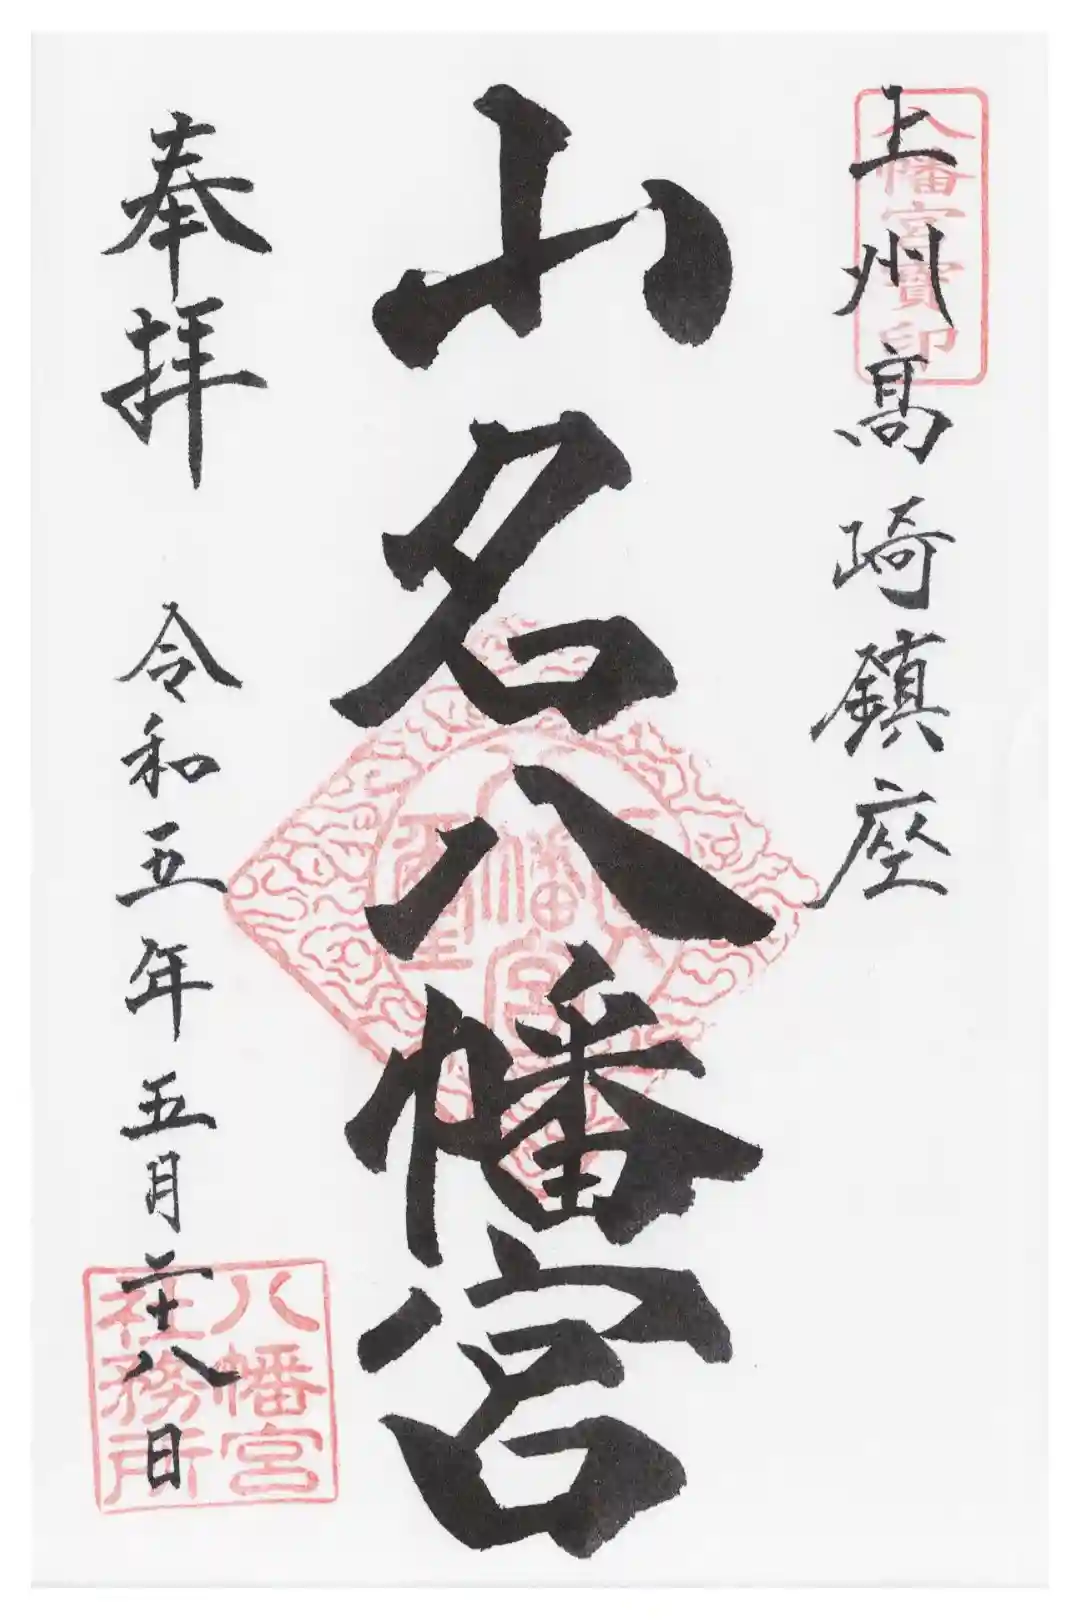 上州髙﨑鎮座
八幡宮寳印
山名八幡宮
奉拝
令和五年五月二十八日
八幡宮
社務所